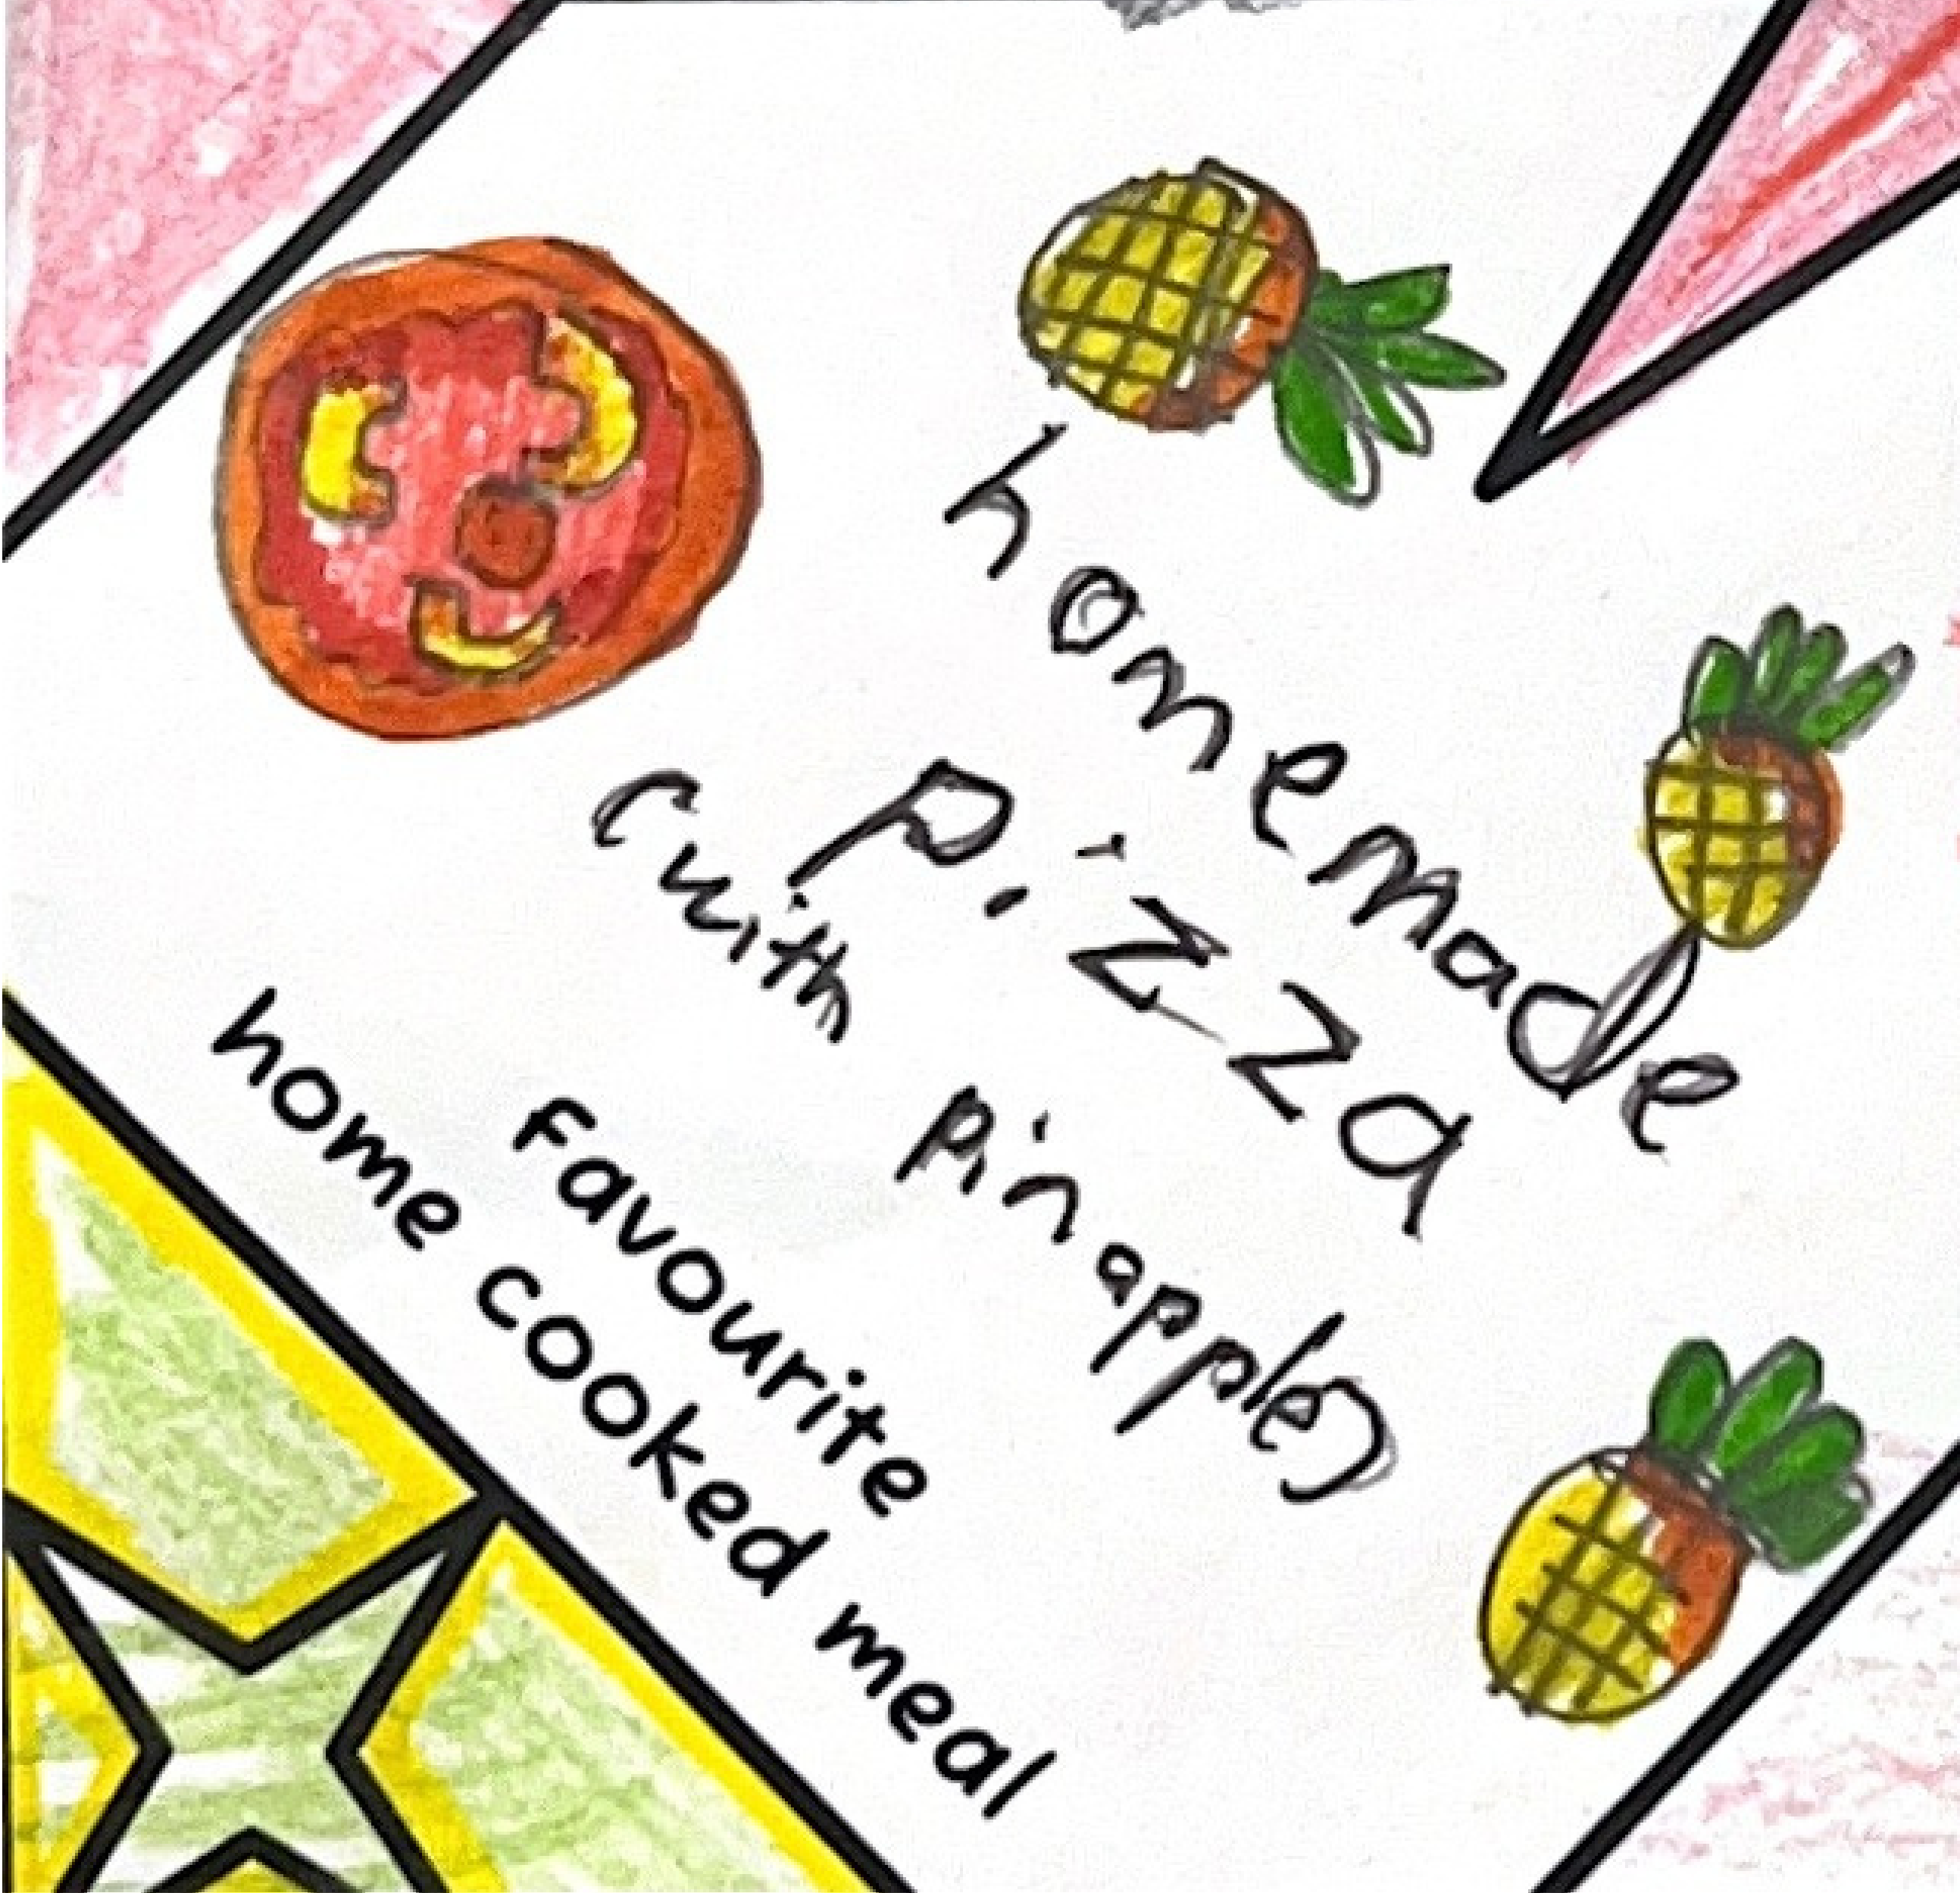 homemade
pizza
(with pinapple)
Favourite
home cooked meal